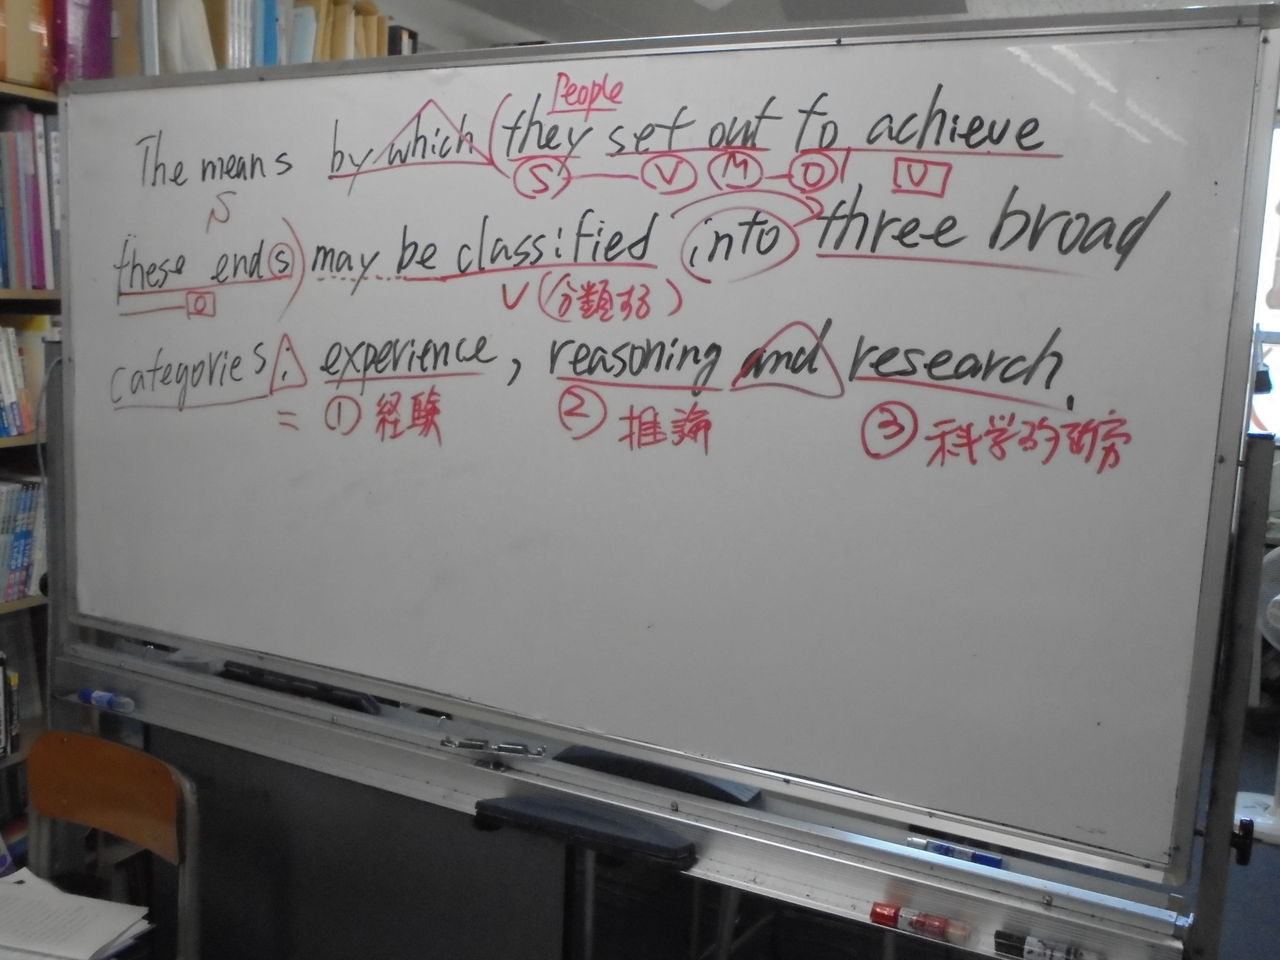 People
The means by which (they set out to achieve
S S V M O V
these ends) may be classified into three broad
O V (分類する)
categories: experience, reasoning and research.
= ① 経験 ② 推論 ③ 科学的研究